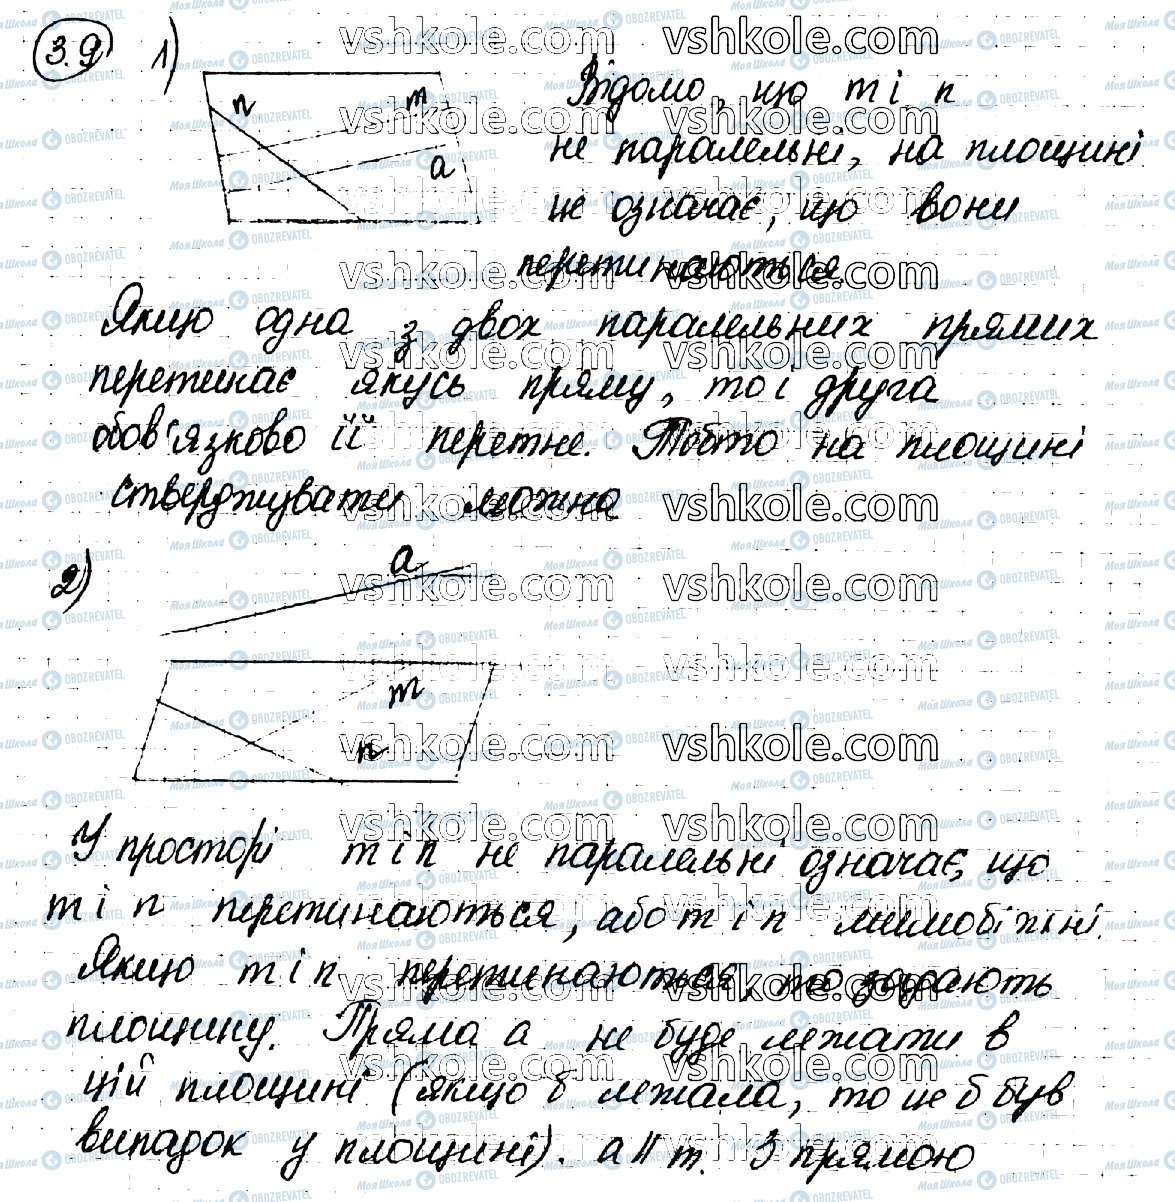 3.9 1)
n m a
Відомо, що m і n
не паралельні, на площині
це означає, що вони
перетинаються
Якщо одна з двох паралельних прямих
перетинає якусь пряму, то і друга
обов'язково її перетне. Тобто на площині
стверджувати можна
2)
a
m
n
У просторі m і n не паралельні означає, що
m і n перетинаються, або m і n мимобіжні.
Якщо m і n перетинаються, то задають
площину. Пряма a не буде лежати в
цій площині (якщо б лежала, то це б був
випадок у площині). a ∥ m. З прямою
vshkole.com
Моя Школа OBOZREVATEL